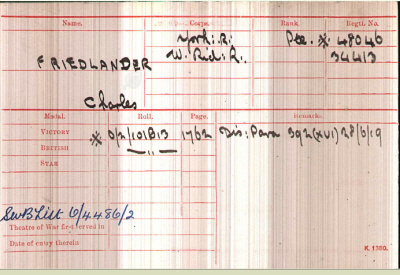 Name. Corps. Rank Regtl. No.
York: R: Pte. * 48046
FRIEDLANDER W. Rid: R. 34413
Charles
Medal. Roll. Page. Remarks.
VICTORY * O/2/101B13 1762 Dis: Para 392(XVI) 28/6/19
BRITISH — „ —
STAR
SWB List 6/4486/2
Theatre of War first served in
Date of entry therein
K. 1380.